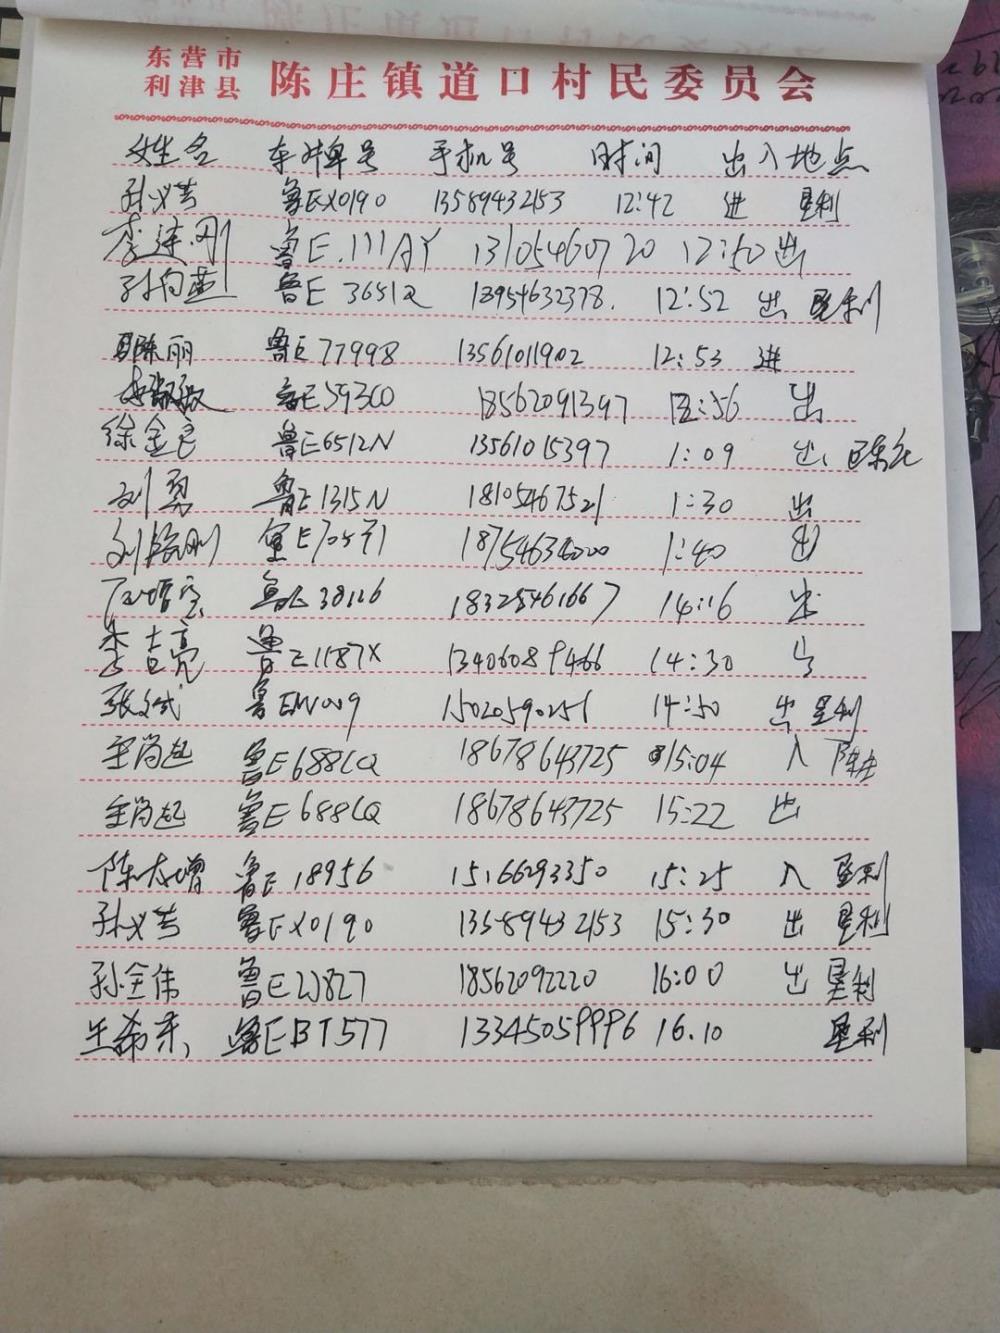 东营市
利津县
陈庄镇道口村民委员会
姓名 车牌号 手机号 时间 出入地点
孙义芳 鲁EX0190 13589432153 12:42 进 垦利
李连刚 鲁E.111AY 13105460720 12:50 出
孙向燕 鲁E 3651Q 13954632378. 12:52 出 垦利
陈丽 鲁E77998 13561011902 12:53 进
鲁E593C0 18562091397 12:56 出
徐金良 鲁E6512N 13561015397 1:09 出
刘勇 鲁E1315N 18105467521 1:30 出
刘 刚 1:40 出
鲁E38116 18328461667 14:16 出
李吉亮 鲁E1187X 13406089466 14:30
张文斌 15020590251 14:50 出 垦利
王尚起 鲁E688LQ 18678643725 15:04 入 陈庄
王尚起 鲁E688LQ 18678643725 15:22 出
陈太增 鲁E18956 15166293350 15:25 入 垦利
孙义芳 鲁EX0190 13589432153 15:30 出 垦利
孙全伟 鲁E2J827 18562092220 16:00 出 垦利
王希东 鲁EBT577 13345059996 16.10 垦利